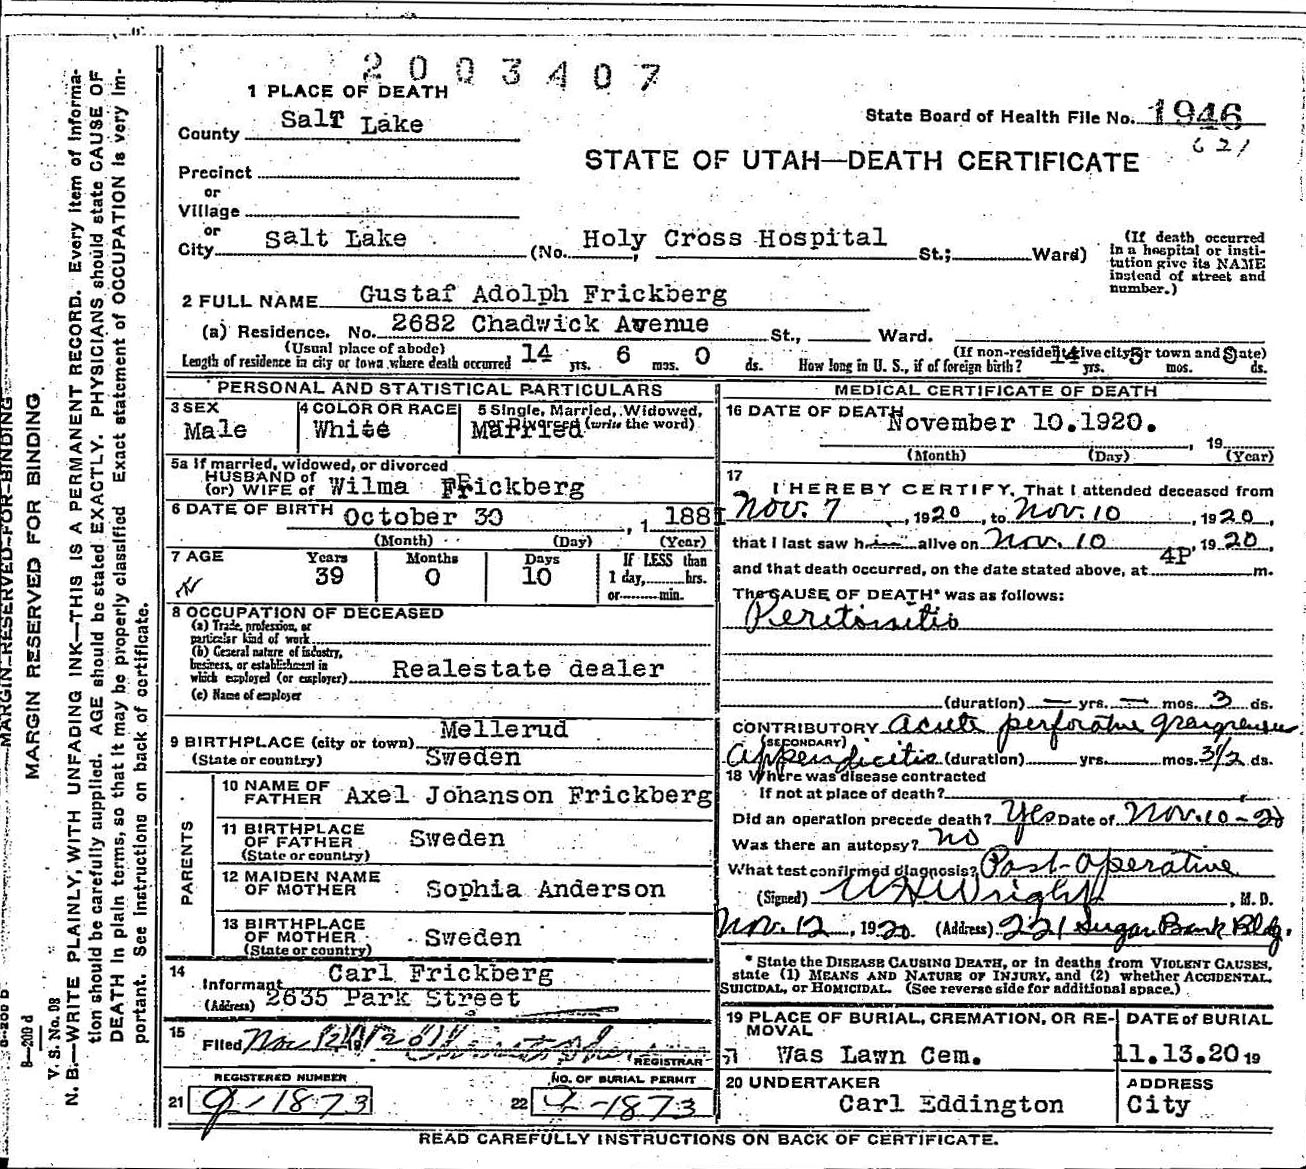 2003407
1 PLACE OF DEATH
County Salt Lake
State Board of Health File No. 1946
621
STATE OF UTAH—DEATH CERTIFICATE
Precinct
or
Village
or
City Salt Lake (No. Holy Cross Hospital St.; Ward)
(If death occurred in a hospital or insti-
tution give its NAME
instead of street and
number.)
2 FULL NAME Gustaf Adolph Frickberg
(a) Residence. No. 2682 Chadwick Avenue St., Ward.
(Usual place of abode) (If non-resident give city or town and State)
Length of residence in city or town where death occurred 14 yrs. 6 mos. 0 ds. How long in U. S., if of foreign birth? 14 yrs. 5 mos. ds.
PERSONAL AND STATISTICAL PARTICULARS
3 SEX
Male
4 COLOR OR RACE
White
5 Single, Married, Widowed,
or Divorced (write the word)
Married
5a If married, widowed, or divorced
HUSBAND of
(or) WIFE of Wilma Frickberg
6 DATE OF BIRTH October 30, 1881
(Month) (Day) (Year)
7 AGE Years Months Days If LESS than
39 0 10 1 day, hrs.
or min.
8 OCCUPATION OF DECEASED
(a) Trade, profession, or
particular kind of work
(b) General nature of industry,
business, or establishment in
which employed (or employer) Realestate dealer
(c) Name of employer
9 BIRTHPLACE (city or town) Mellerud
(State or country) Sweden
PARENTS
10 NAME OF
FATHER Axel Johanson Frickberg
11 BIRTHPLACE
OF FATHER Sweden
(State or country)
12 MAIDEN NAME
OF MOTHER Sophia Anderson
13 BIRTHPLACE
OF MOTHER Sweden
(State or country)
14
Informant Carl Frickberg
(Address) 2635 Park Street
15
Filed Nov 12 1920
REGISTRAR
REGISTERED NUMBER
21 1873
NO. OF BURIAL PERMIT
22 1873
MEDICAL CERTIFICATE OF DEATH
16 DATE OF DEATH November 10.1920. , 19
(Month) (Day) (Year)
17
I HEREBY CERTIFY, That I attended deceased from
Nov. 7, 1920, to Nov. 10, 1920,
that I last saw him alive on Nov. 10, 1920,
and that death occurred, on the date stated above, at 4P m.
The CAUSE OF DEATH* was as follows:
Peritonitis
(duration) — yrs. — mos. 3 ds.
CONTRIBUTORY Acute perforative gangrenous
(SECONDARY)
Appendicitis (duration) yrs. mos. 3½ ds.
18 Where was disease contracted
If not at place of death?
Did an operation precede death? Yes Date of Nov. 10-20
Was there an autopsy? no
What test confirmed diagnosis? Post-Operative
(Signed) Wright, M. D.
Nov. 12, 1920. (Address) 221 Sugar Bank Bldg.
* State the DISEASE CAUSING DEATH, or in deaths from VIOLENT CAUSES,
state (1) MEANS AND NATURE OF INJURY, and (2) whether ACCIDENTAL,
SUICIDAL, or HOMICIDAL. (See reverse side for additional space.)
19 PLACE OF BURIAL, CREMATION, OR RE-
MOVAL
Was Lawn Cem.
DATE of BURIAL
11.13.20 19
20 UNDERTAKER
Carl Eddington
ADDRESS
City
READ CAREFULLY INSTRUCTIONS ON BACK OF CERTIFICATE.
MARGIN RESERVED FOR BINDING
MARGIN RESERVED FOR BINDING
8—200 d
V. S. No. 98
N. B.—WRITE PLAINLY, WITH UNFADING INK—THIS IS A PERMANENT RECORD. Every item of informa-
tion should be carefully supplied. AGE should be stated EXACTLY. PHYSICIANS should state CAUSE OF
DEATH in plain terms, so that it may be properly classified. Exact statement of OCCUPATION is very im-
portant. See instructions on back of certificate.